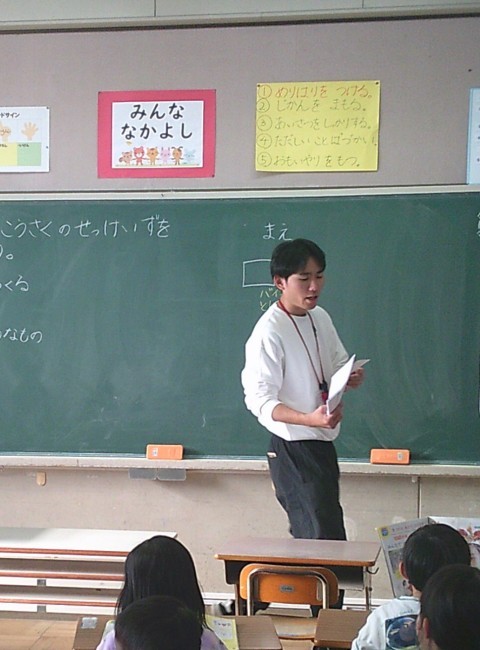 みんな
なかよし
① めりはりを つける。
② じかんを まもる。
③ あいさつをしっかりする。
④ ただしいことばづかい。
⑤ おもいやりをもつ。
こうさくのせっけいずを
。
くる
なもの
まえ